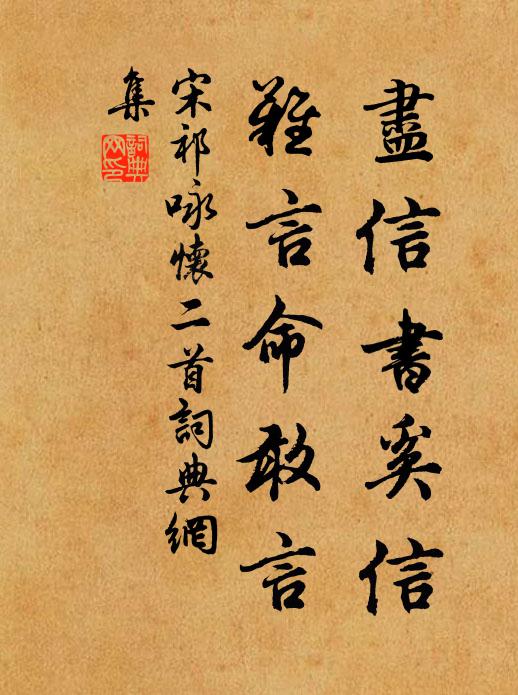 盡信書奚信
難言命敢言
宋祁咏懷二首詞典網
集
詞典
网印